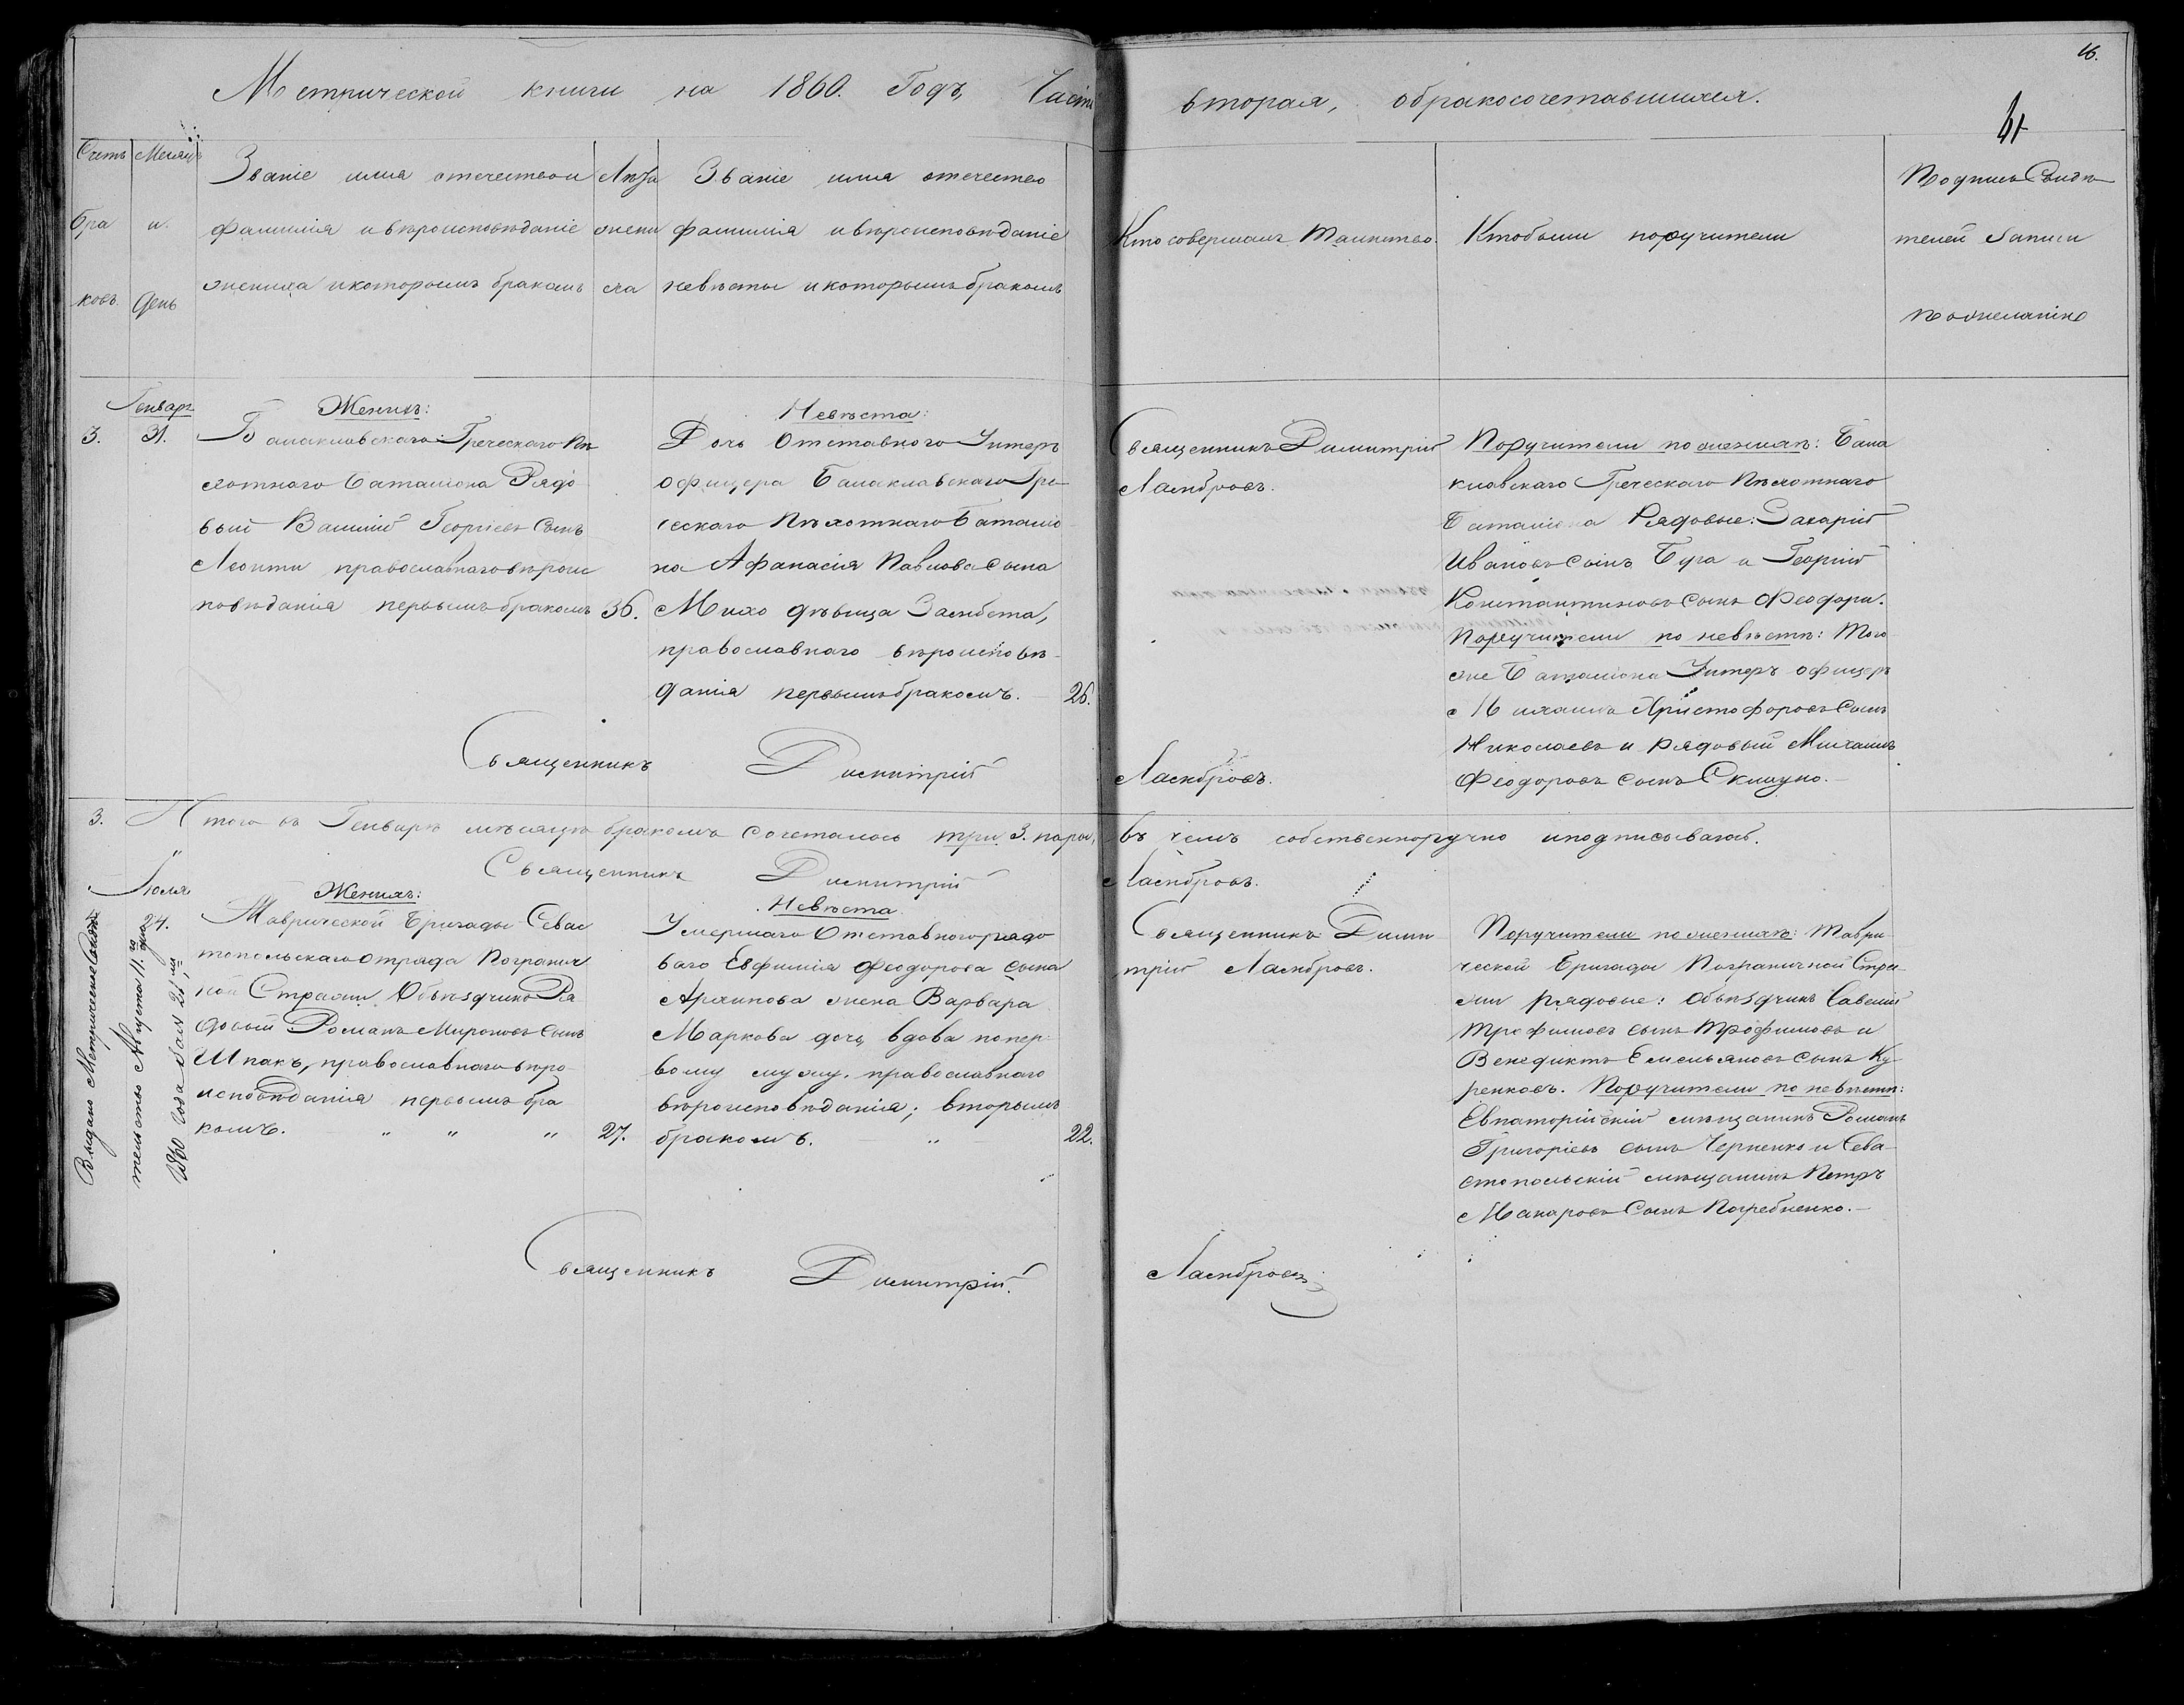 16.
41
Метрической книги на 1860. Годъ, Части вторая, обракосочетавшихся.
Счетъ
бра
ковъ.
Месяцъ
и
День
Званіе имя отечество и
фамилія и вѣроисповѣданіе
жениха и которымъ бракомъ
Лѣта
жени
ха
Званіе имя отечество
фамилія и вѣроисповѣданіе
невѣсты и которымъ бракомъ
Кто совершалъ Таинство.
Кто были поручители
Подпись Свидѣ
телей записи
по желанію
Генваря
3.
31.
Женихъ:
Балаклавскаго Греческаго Пѣ
хотнаго Баталіона Рядо
вый Василій Георгіевъ Сынъ
Леонти православнаго вѣроис
повѣданія первымъ бракомъ
36.
Невѣста:
Дочь Отставного Унтеръ
офицера Балаклавскаго Гре
ческаго Пѣхотнаго Баталіо
на Афанасія Павлова Сына
Михо дѣвица Замбета,
православнаго вѣроисповѣ-
данія первымъ бракомъ.
26.
Священникъ Димитрій
Ламбровъ.
Поручители по женихѣ: Бала
клавскаго Греческаго Пѣхотнаго
Баталіона Рядовые: Захарій
Ивановъ сынъ Буга и Георгій
Константиновъ Сынъ Феодори.
Поручители по невѣстѣ: Того
же Баталіона Унтеръ офицеръ
Михаилъ Христофоровъ Сынъ
Николаевъ и рядовый Михаилъ
Феодоровъ сынъ
Священникъ Димитрій Ламбровъ.
3. Итого въ Генварѣ мѣсяцѣ бракомъ сочеталось три 3. пары, въ чемъ собственноручно и подписываюсь.
Священникъ Димитрій Ламбровъ.
Іюля
24.
Выдано Метрическое Свидѣ
тельство Августа 11. дня
1860 года за № 21,
Женихъ:
Таврической Бригады Севас
топольскаго отряда Погранич
ной Стражи Объѣздчикъ Ря
довый Романъ Мироновъ Сынъ
Шпакъ, православнаго вѣро-
исповѣданія первымъ бра
комъ. " " "
27.
Невѣста
Умершаго Отставного рядо
ваго Евфимія Феодорова сына
Архипова жена Варвара
Маркова дочь, вдова по пер-
вому мужу. православнаго
вѣроисповѣданія; вторымъ
бракомъ. "
22.
Священникъ Дими
трій Ламбровъ.
Поручители по женихѣ: Таври-
ческой Бригады Пограничной Стра-
жи рядовые: Объѣздчикъ Савелій
Трофимовъ сынъ Трофимовъ и
Венедиктъ Емельяновъ Сынъ Ку-
ренковъ. Поручители по невѣстѣ:
Евпаторійскій мѣщанинъ Романъ
Григоріевъ сынъ Черненко и Сева-
стопольскій мѣщанинъ Петръ
Макаровъ Сынъ Погребненко.
Священникъ Димитрій. Ламбровъ